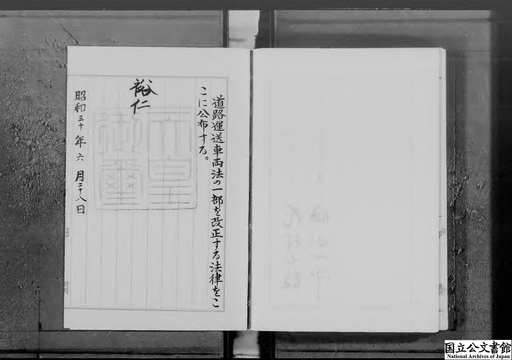 道路運送車両法の一部を改正する法律をこ
こに公布する。
裕仁
天皇
御璽
昭和三十年六月二十八日
国立公文書館
National Archives of Japan